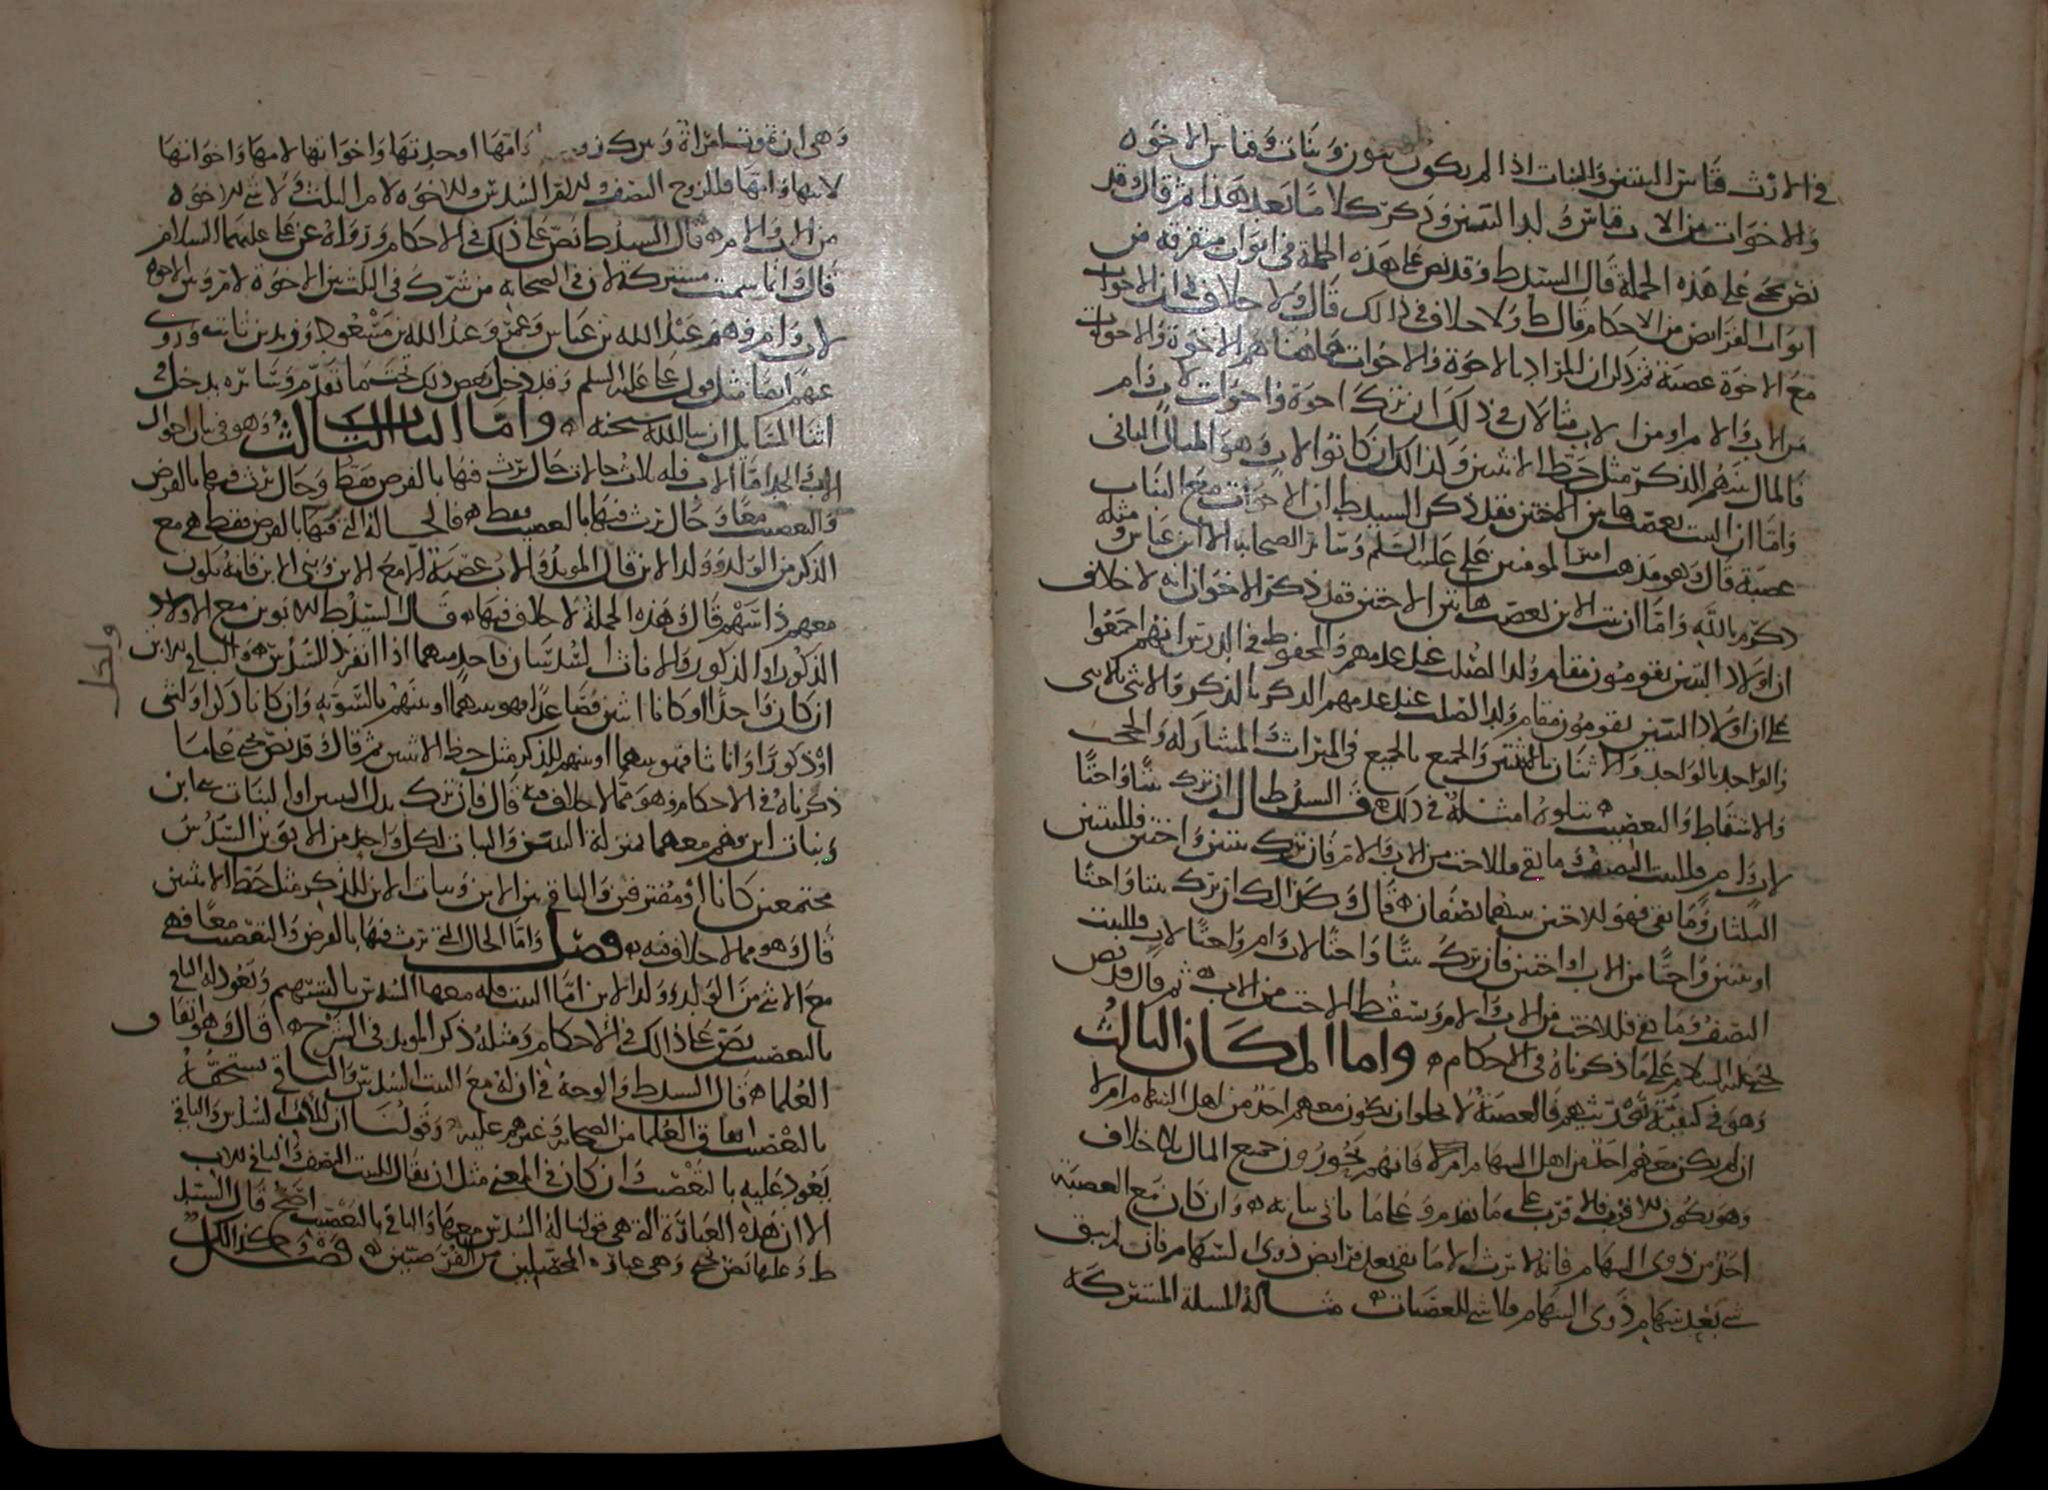 في الارث قياس البنين والبنات اذا لم يكون بنون وبنات وقياس الاخوه
والاخوات من الاب قياس ولد البنين وذكر كلاما بعد هذا ثم قال وقد
نص يحيى على هذه الجملة قال السيد ط وقد نص على هذه الجملة في ابواب متفرقه من
ابواب الفرائض من الاحكام قال ط ولا خلاف في ذالك قال ولا خلاف في ان الاخوات
مع الاخوة عصبة ثم ذكر ان المراد بالاخوة والاخوات هاهنا هم الاخوة والاخوات
من الاب والام او من الاب مثال في ذلك ان ترك اخوة واخوات لاب وام
فالمال بينهم للذكر مثل حظ الانثيين وكذالك ان كانوا لاب وهو المثال الثاني
واما ان البنت تعصب الاختين فقد ذكر السيد ط ان الاخوات مع البنات
عصبة قال وهو مذهب امير المومنين علي عليه السلم وسائر الصحابه الا ابن عباس ومثله
ذكر م بالله واما ان بنت الابن تعصب الاختين فقد ذكر الاخوان انه لا خلاف
ان اولاد البنين يقومون مقام ولد الصلب عند عدمهم والمحفوظ في الدرس انهم اجمعوا
على ان اولاد البنين يقومون مقام ولد الصلب عند عدمهم الذكر بالذكر والانثى بالانثى
والواحد بالواحد والاثنان بالاثنين والجميع بالجميع في الميراث والمشاركه والحجب
والاسقاط والتعصيب يتلوه امثله في ذلك قال السيد ط ان ترك بنتا واختا
لاب وام فللبنت النصف وما بقي فللاخت من الاب والام فان ترك بنتين واختين فللبنتين
الثلثان وما بقي فهو للاختين بينهما نصفان قال وكذالك ان ترك بنتا واختا
او بنتين واختا من الاب او اختين فان ترك بنتا واختا لاب وام واختا لاب فللبنت
النصف وما بقي فللاخت من الاب والام وسقط الاخت من الاب ثم قال قد نص
يحيى عليه السلام على ما ذكرناه في الاحكام واما المكان الثالث
وهو في كيفية توريثهم فالعصبة لا يخلو ان يكون معهم احد من اهل السهام ام لا
ان لم يكن معهم احد من اهل السهام فانهم يحوزون جميع المال بلا خلاف
وهو يكون للاقرب فالاقرب على ما تقدم وعلى ما ياتي بيانه وان كان مع العصبة
احد من ذوي السهام فانه لا يرث الا ما بقي بعد فرائض ذوي السهام فان لم يبق
شي بعد سهام ذوي السهام فلا شي للعصبات مثاله المسلة المشتركة
وهي ان تموت امراة وتترك زوجا وامها او جدتها واخواتها لامها واخواتها
لابيها وامها فللزوج النصف وللام السدس وللاخوه لام الثلث ولا شي للاخوه
من الاب والام قال السيد ط نص على ذلك في الاحكام ورواه عن علي عليهما السلام
قال وانما سميت مشتركة لان في الصحابه من شرك في الثلث بين الاخوة لام وبين الاخوه
لاب وام وهم عبد الله بن عباس وعمر وعبد الله بن مسعود وزيد بن ثابت وروي
عنهم ايضا مثل قول علي عليه السلم وقد دخل بعض ذلك تحت ما تقدم وسائره يدخل في
اثنا المسايل ان شا الله سبحنه واما الباب الثالث وهو في بيان احوال
الاب والجد اما الاب فله ثلاث حالات حال يرث فيها بالفرض فقط وحال يرث فيها بالفرض
والتعصيب معا وحال يرث فيها بالتعصيب فقط فالحالة التي فيها بالفرض فقط هي مع
الذكر من الولد وولد الابن قال المويد والاب عصبة الا مع الابن وبني الابن فانه يكون
معهم ذا سهم قال وهذه الجملة لا خلاف فيها قال السيد ط للابوين مع الاولاد
الذكور او الذكور والاناث السدسان فاحد منهما اذا انفرد السدس والباقي للابن
ان كان واحدا او كانا اثنين فصاعدا فهو بينهما او بينهم بالسويه وان كانا ذكرا وانثى
او ذكورا واناثا فهو بينهما او بينهم للذكر مثل حظ الانثيين ثم قال وقد نص يحيى على ما
ذكرناه في الاحكام وهو مما لا خلاف فيه قال فان ترك بدل البنين او البنات بني ابن
وبنات ابن وهم معهما بمنزلة البنين والبنات لكل واحد من الابوين السدس
مجتمعين كانا او مفترقين والباقي بين الابن وبنات الابن للذكر مثل حظ الانثيين
قال وهو مما لا خلاف فيه فصل واما الحال التي يرث فيها بالفرض والتعصيب معا فهي
مع الانثى من الولد وولد الابن اما البنت فله معها السدس بالتسهيم ويعود له الباقي
بالتعصيب نص على ذالك في الاحكام ومثله ذكر المويد في الشرح قال وهو اتفاق
العلما قال السيد ط والوجه في ان له مع البنت السدس والباقي يستحقه
بالتعصيب اتفاق العلما من الصحابه وغيرهم عليه وقولنا ان للاب السدس والباقي
يعود عليه بالتعصيب وان كان في المعنى مثل ان يقال للبنت النصف والباقي للاب
الا ان هذه العبارة التي هي قولنا له السدس معها والباقي بالتعصيب اصح قال السيد
ط وعليها نص يحيى وهي عبارة المحصلين من الفرضيين فصل وكذالك